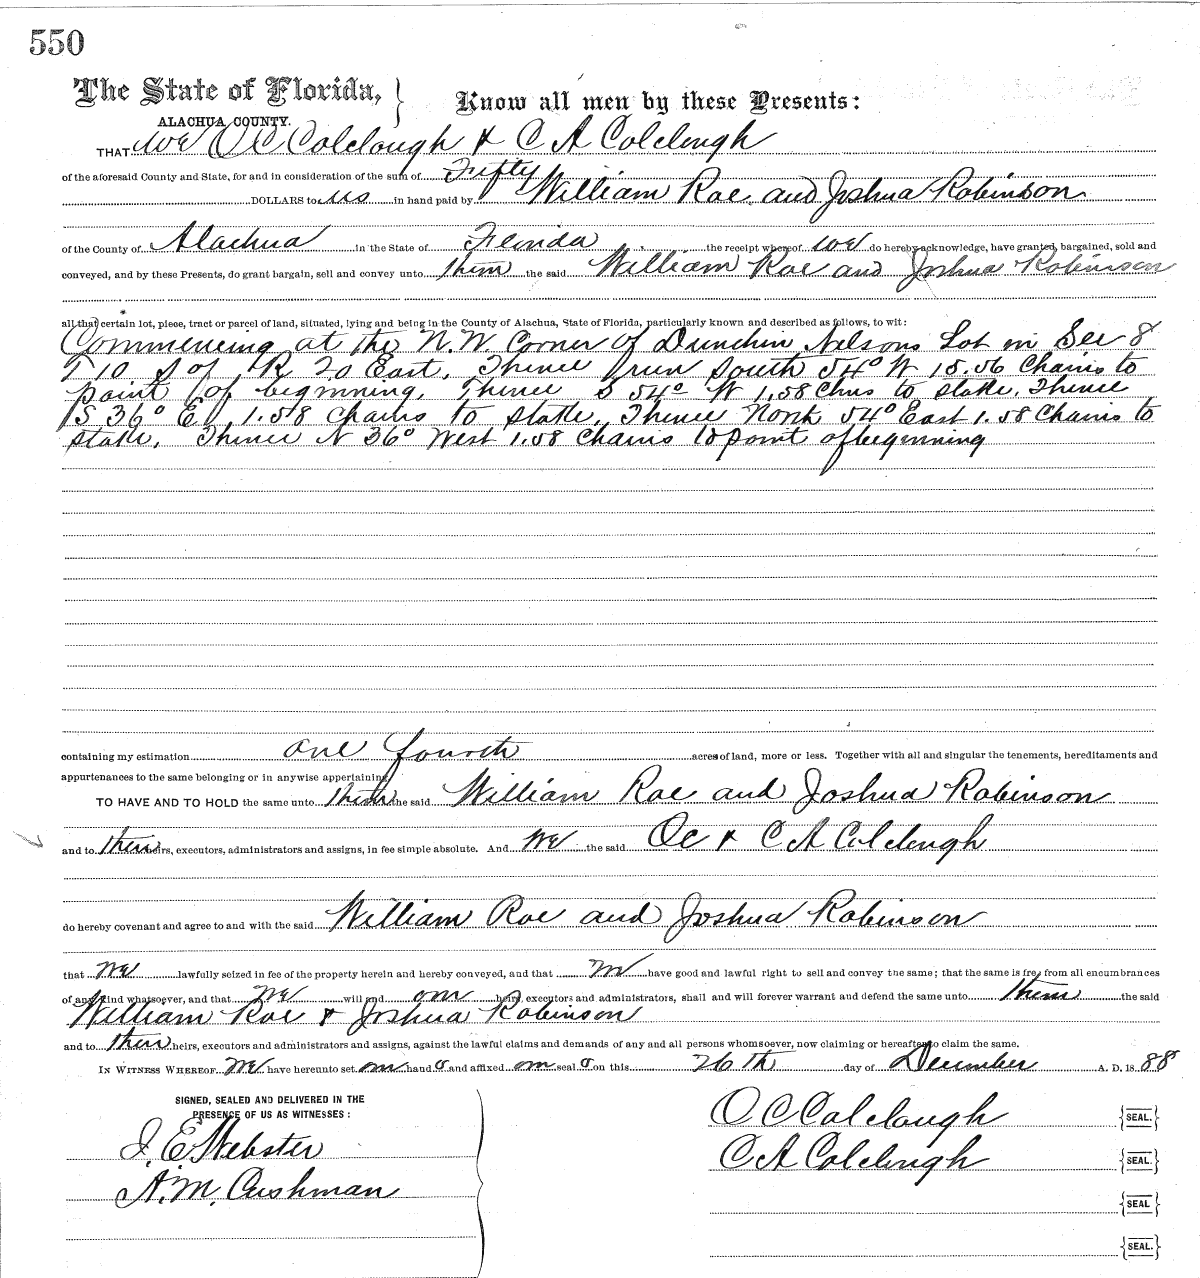 550
The State of Florida, } Know all men by these Presents:
ALACHUA COUNTY.
THAT we O C Colclough & C A Colclough
of the aforesaid County and State, for and in consideration of the sum of Fifty
DOLLARS to us in hand paid by William Roe and Joshua Robinson
of the County of Alachua in the State of Florida the receipt whereof we do hereby acknowledge, have granted, bargained, sold and
conveyed, and by these Presents, do grant bargain, sell and convey unto them the said William Roe and Joshua Robinson
all that certain lot, piece, tract or parcel of land, situated, lying and being in the County of Alachua, State of Florida, particularly known and described as follows, to wit:
Commencing at the N.W. Corner of Nelsons Lot in Sec 8
T 10 S of R 20 East, Thence run South 54° W 15.56 Chains to
point of beginning, Thence S 54° W 1.58 Chns to stake, Thence
S 36° E 1.58 Chains to stake, Thence North 54° East 1.58 Chains to
stake, Thence N 36° West 1.58 Chains to point of beginning
containing my estimation one fourth acres of land, more or less. Together with all and singular the tenements, hereditaments and
appurtenances to the same belonging or in anywise appertaining
TO HAVE AND TO HOLD the same unto them the said William Roe and Joshua Robinson
and to their heirs, executors, administrators and assigns, in fee simple absolute. And We the said OC & C A Colclough
do hereby covenant and agree to and with the said William Roe and Joshua Robinson
that we lawfully seized in fee of the property herein and hereby conveyed, and that we have good and lawful right to sell and convey the same; that the same is free from all encumbrances
of any kind whatsoever, and that we will and our heirs, executors and administrators, shall and will forever warrant and defend the same unto them the said
William Roe & Joshua Robinson
and to their heirs, executors and administrators and assigns, against the lawful claims and demands of any and all persons whomsoever, now claiming or hereafter to claim the same.
IN WITNESS WHEREOF We have hereunto set our hand s and affixed our seal s on this 26th day of December A. D. 18 88
SIGNED, SEALED AND DELIVERED IN THE
PRESENCE OF US AS WITNESSES:
O C Colclough {SEAL.}
J. E Webster
C A Colclough {SEAL.}
A. M. Cushman
{SEAL}
{SEAL.}